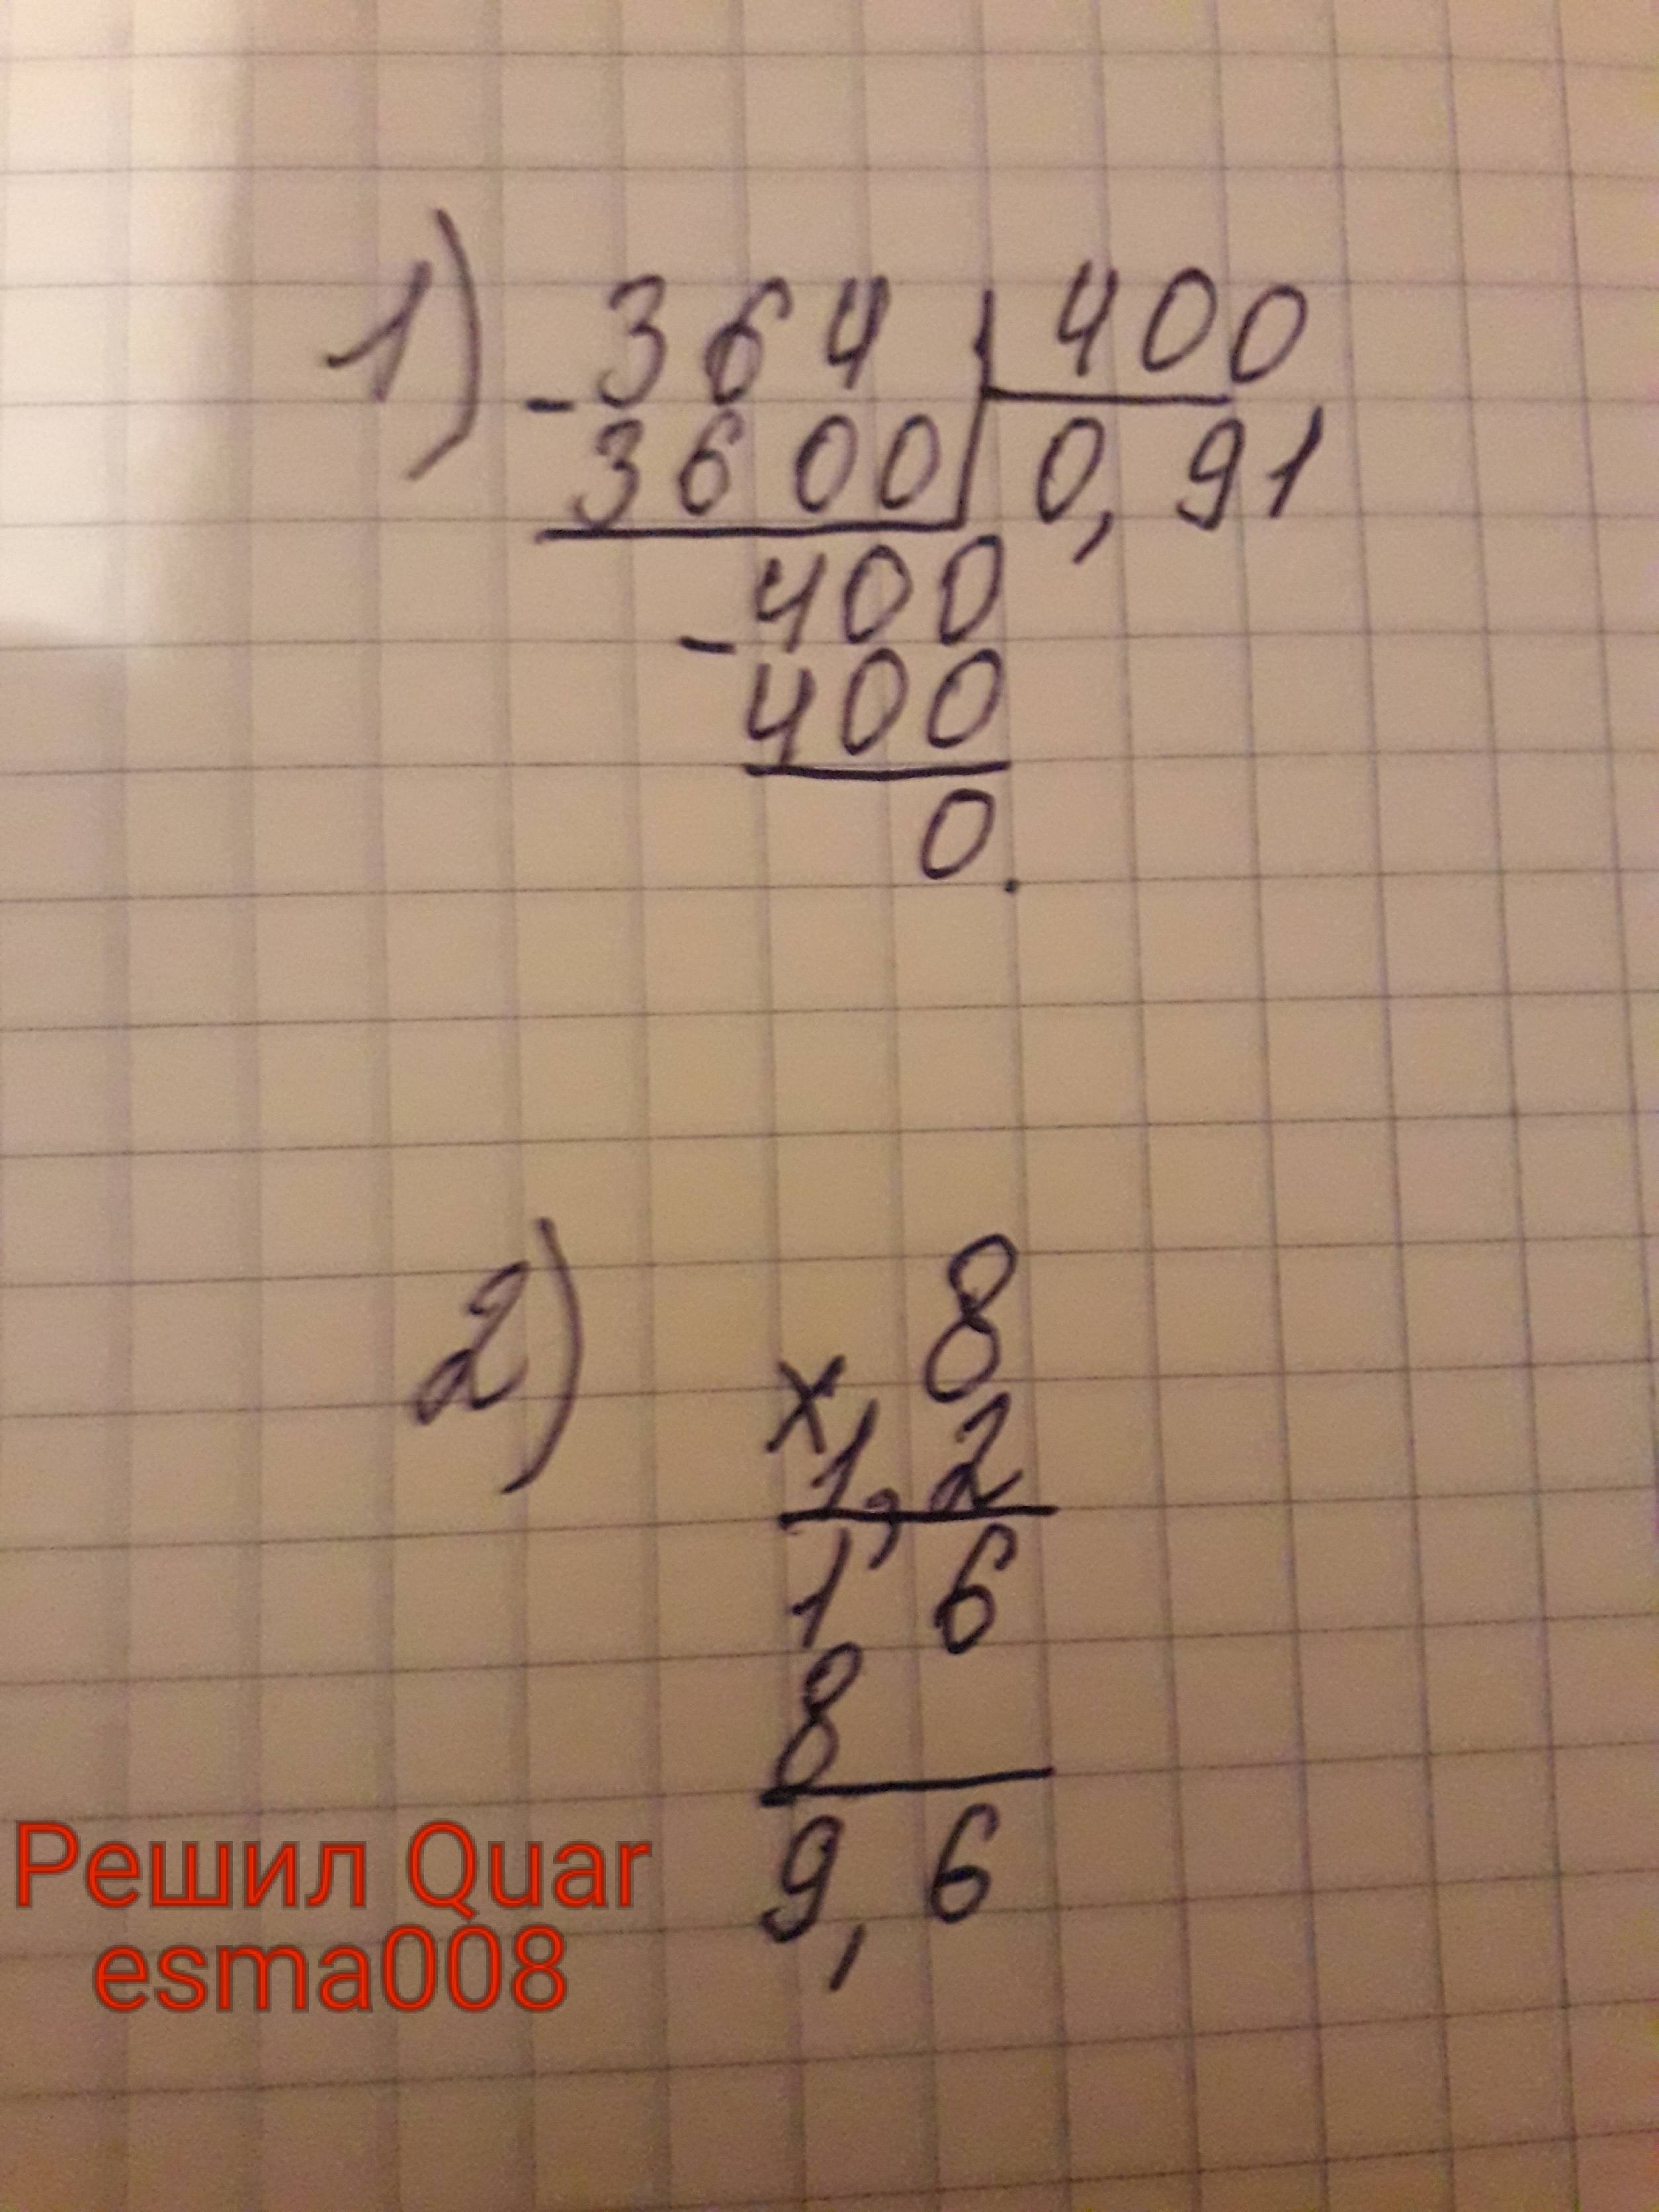 1) - 364 | 400
3600 | 0,91
- 400
400
0.
2) 8
x 1,2
1 6
8
9,6
Решил Quar
esma008